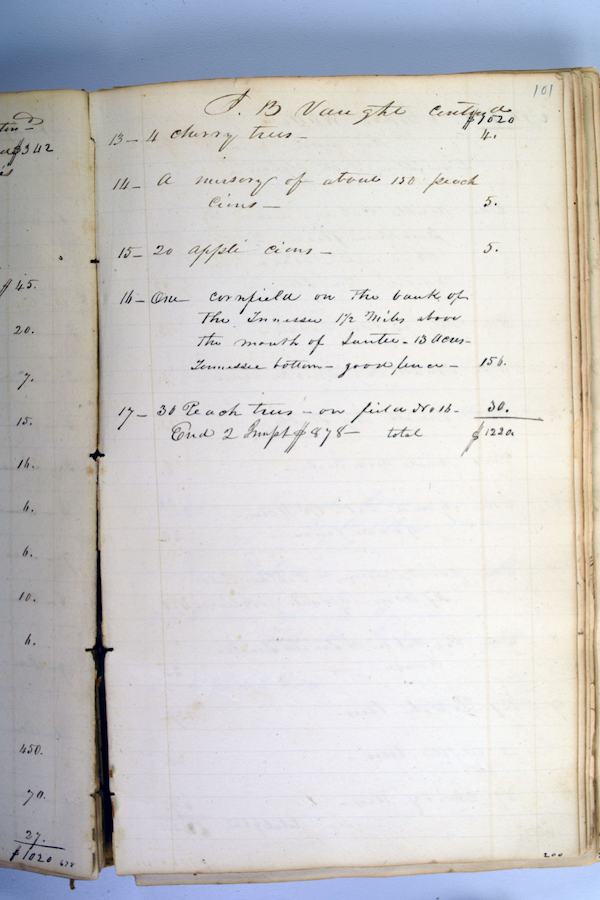 tin—d
$342
$45.
20.
7.
15.
16.
6.
6.
10.
6.
450.
70.
27.
$1020
101
B Vaught contind
$1020
13 – 4 cherry trees – 4.
14 – A nursery of about 150 peach
cions – 5.
15 – 20 apple cions – 5.
16 – One cornfield on the bank of
the Tennessee 1½ miles above
the mouth of – 13 Acres –
Tennessee bottom – good fence – 156.
17 – 30 Peach trees – on field No 16 – 30.
End 2 $878 – total $1220.
200